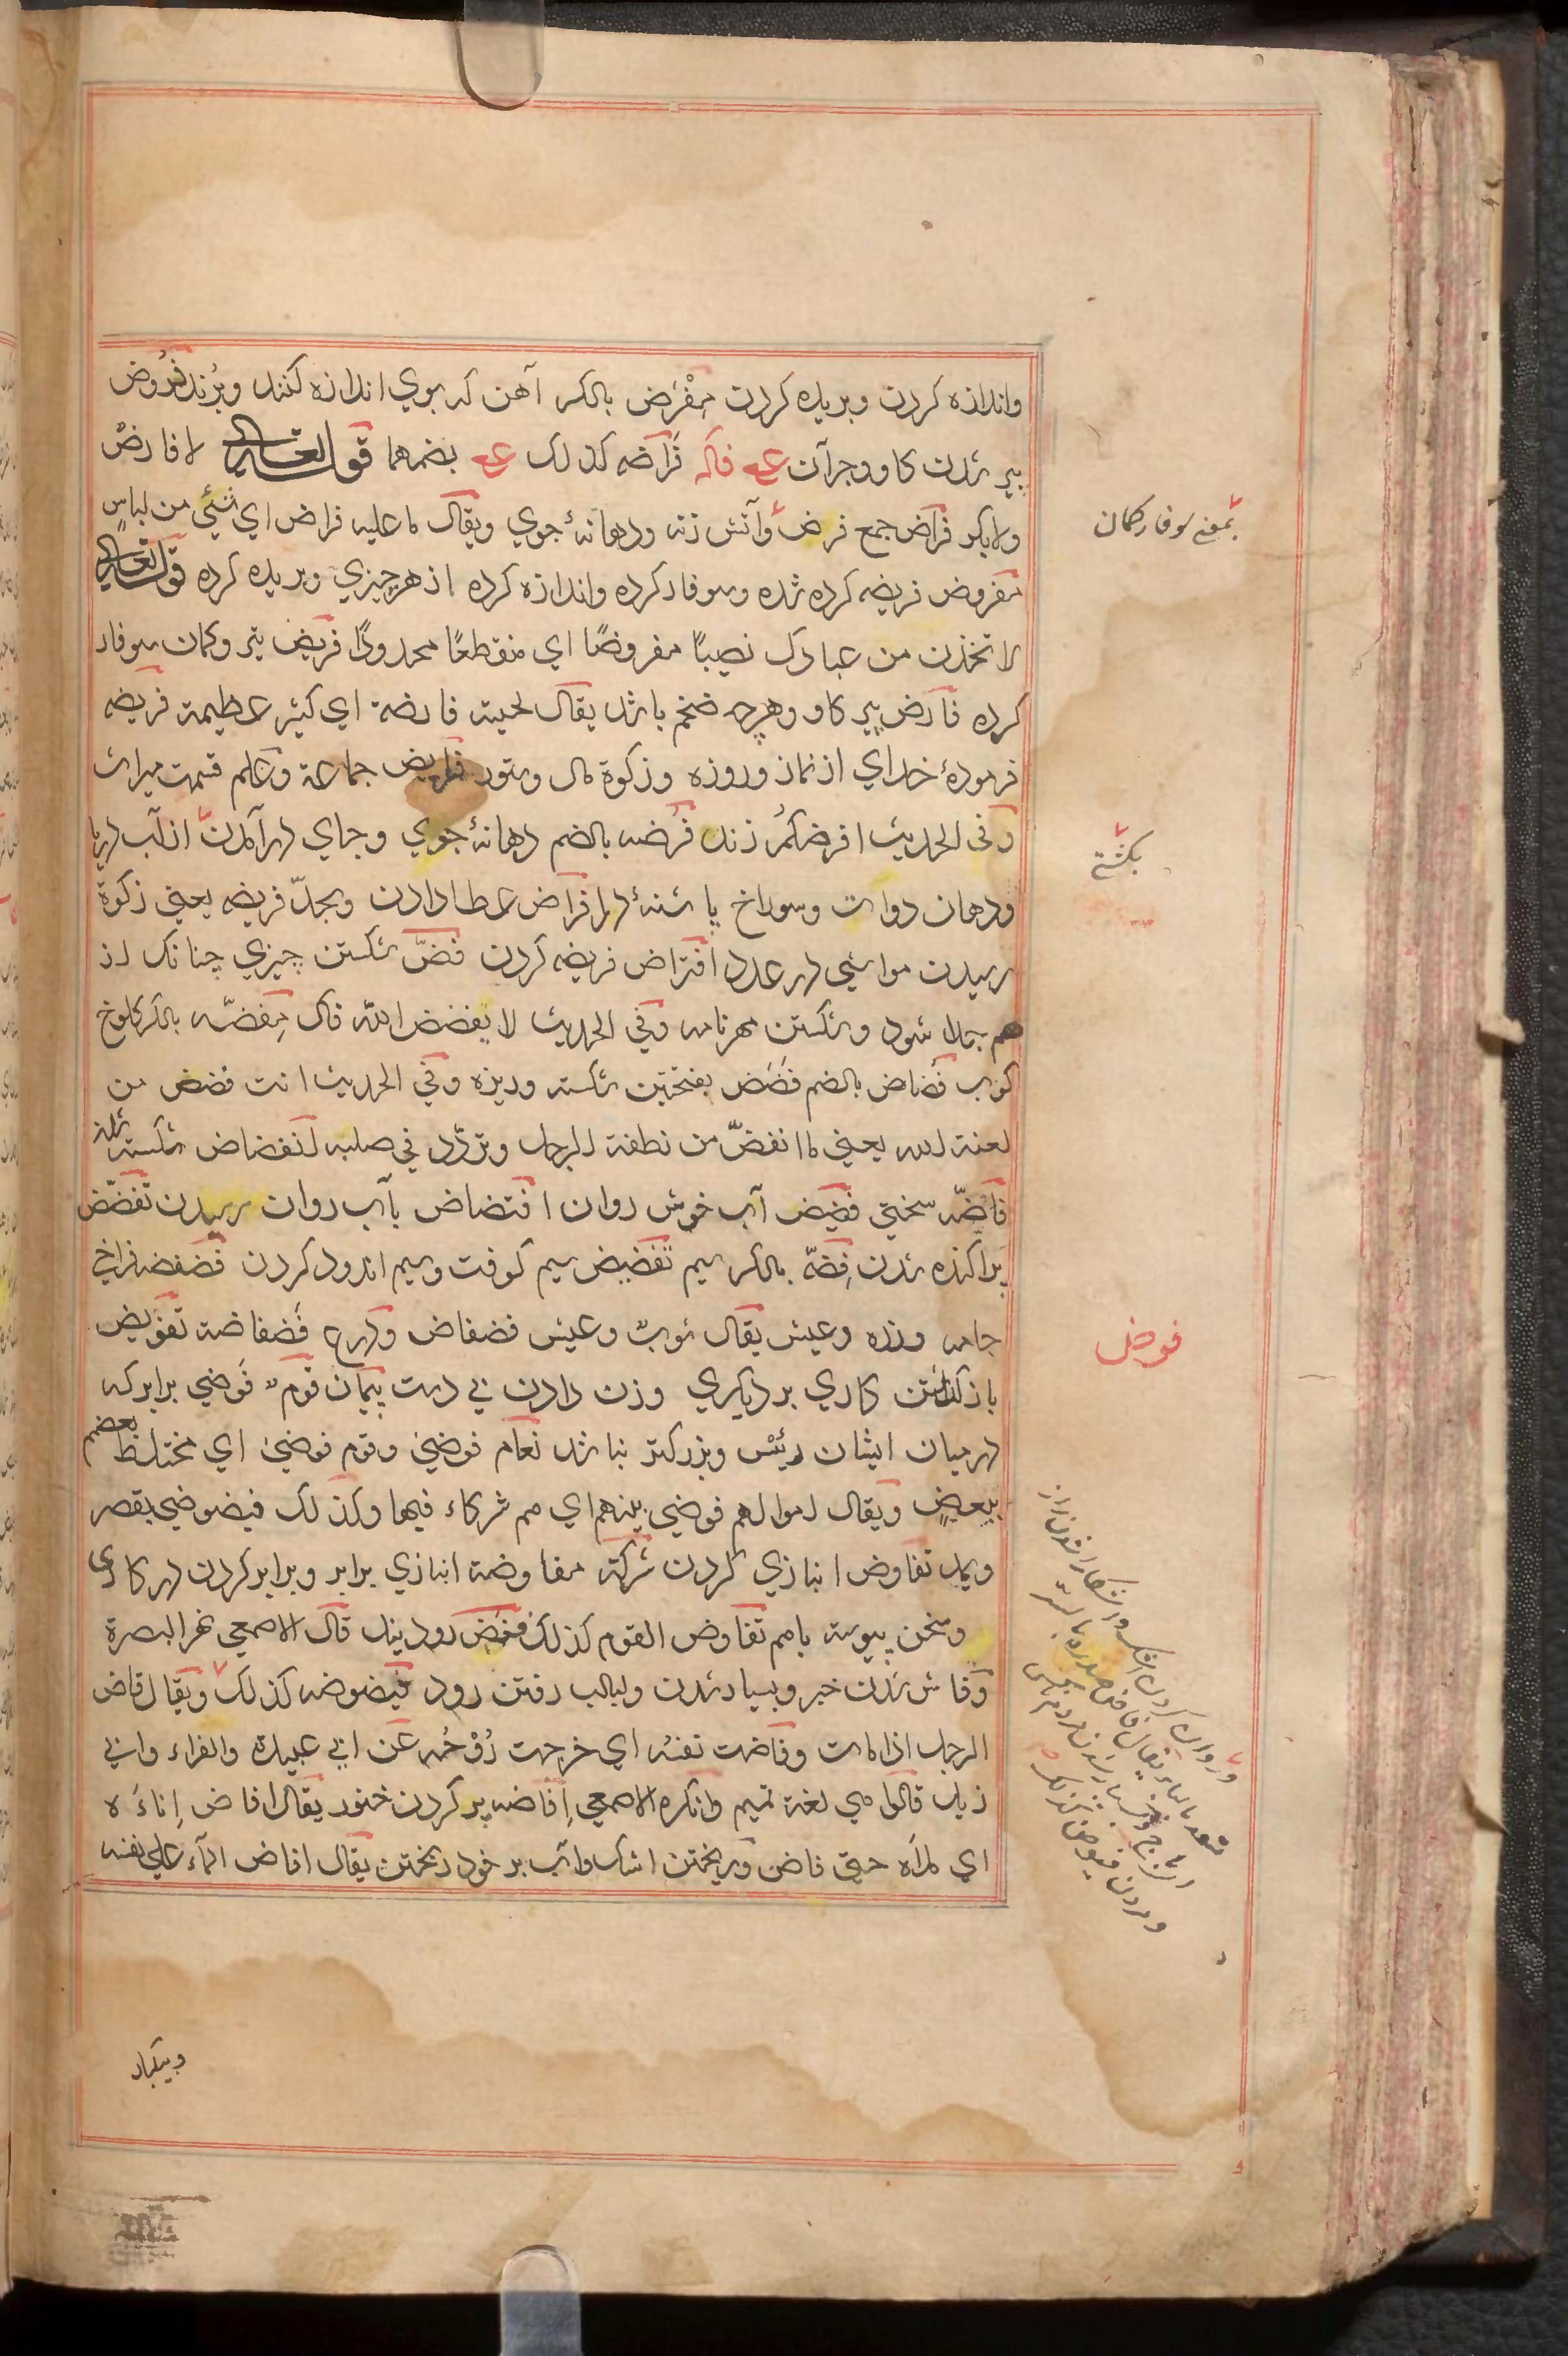 واندازه کردن وبریده کردن مِفْرَض بالکسر آهن که بوي اندازه کنند وبرند فُرُوض
پیر شدن کاو وجزآن فرَاضه کذلک بضمهما قوله تعالی لا فارضٌ
ولا بکر فراض جمع فرض وآتش زنه ودهانهٔ جوي ویقال ما علیه فراض اي شئي من لباسٍ
مفروض فریضه کرده شده وسوفار کرده واندازه کرده از هر چیزي وبریده کرده قوله تعالی
لاتخذن من عبادک نصیبًا مفروضًا اي منقطعًا محدودًا فریض تیر وکمان سوفار
کرده فارض پیر کاو وهرچه ضخم باشد یقال لحیة فارضة اي کثیر عظیمة فریضه
فرمودهٔ خداي از نماز وروزه وزکوة مال وستور فرایض جماعة وعلم قسمت میراث
وفي الحدیث افرضکم زید فُرضه بالضم دهانهٔ جوي وجاي درآمدن از لب دریا
ودهان دوات وسوراخ پاشنهٔ در افراض عطا دادن وبحدّ فریضه یعني زکوة
رسیدن مواشي در عدد افتراض فریضه کردن فضّ شکستن چیزي چنانک از
هم جدا شود وشکستن مهر نامه وفي الحدیث لا یفضض الله فاک مِفضّه بالکسر کلوخ
کوب فُضاض بالضم فَضَض بفتحتین شکسته وریزه وفي الحدیث انت فضض من
لعنة الله یعني ما انفضّ من نطفة الرجل وتردّد في صلبه انفضاض شکسته شدن
فاضّه سختي فضیض آب خوش روان افتضاض بآب روان رسیدن تفضّض
پراکنده شدن فِضّه بالکسر سیم تفضیض سیم کوفت وسیم اندود کردن فضفضه فراخي
جامه وزره وعیش یقال ثوبٌ وعیش فضفاض ودرع فضفاضة تفویض
باز گذاشتن کاري بر دیگري وزن دادن بي دست پیمان قومٌ فَوضي برابر که
در میان ایشان رئیس وبزرکتر نباشد نعام فوضي وقوم فوضي اي مختلط بعضهم
ببعضٍ ویقال اموالهم فوضي بینهم اي هم شرکاء فیها وکذلک فیضوضي بقصر
ویمد تفاوض انبازي کردن شرکة مفاوضة انبازي برابر وبرابر کردن در کاری
وسخن پیوسته باهم تفاوض القوم کذلک فیض رود نیل قال الاصمعي نهر البصرة
وفاش شدن خبر وبسیار شدن ولبالب رفتن رود فیضوضه کذلک ویقال فاض
الرجل اذا مات وفاضت نفسُه اي خرجت رُوْحُه عَن ابي عبیدة والفراء وابي
زید قالوا هي لغة تمیم وانکره الاصمعي اِفاضه پر کردن خنور یقال افاض اِناءَ ه
اي ملأه حتي فاض وریختن اشک وآب بر خود ریختن یقال افاض المآء علي نفسه
بمعنی سوفار کمان
بکشتی
فوض
وبیکبار